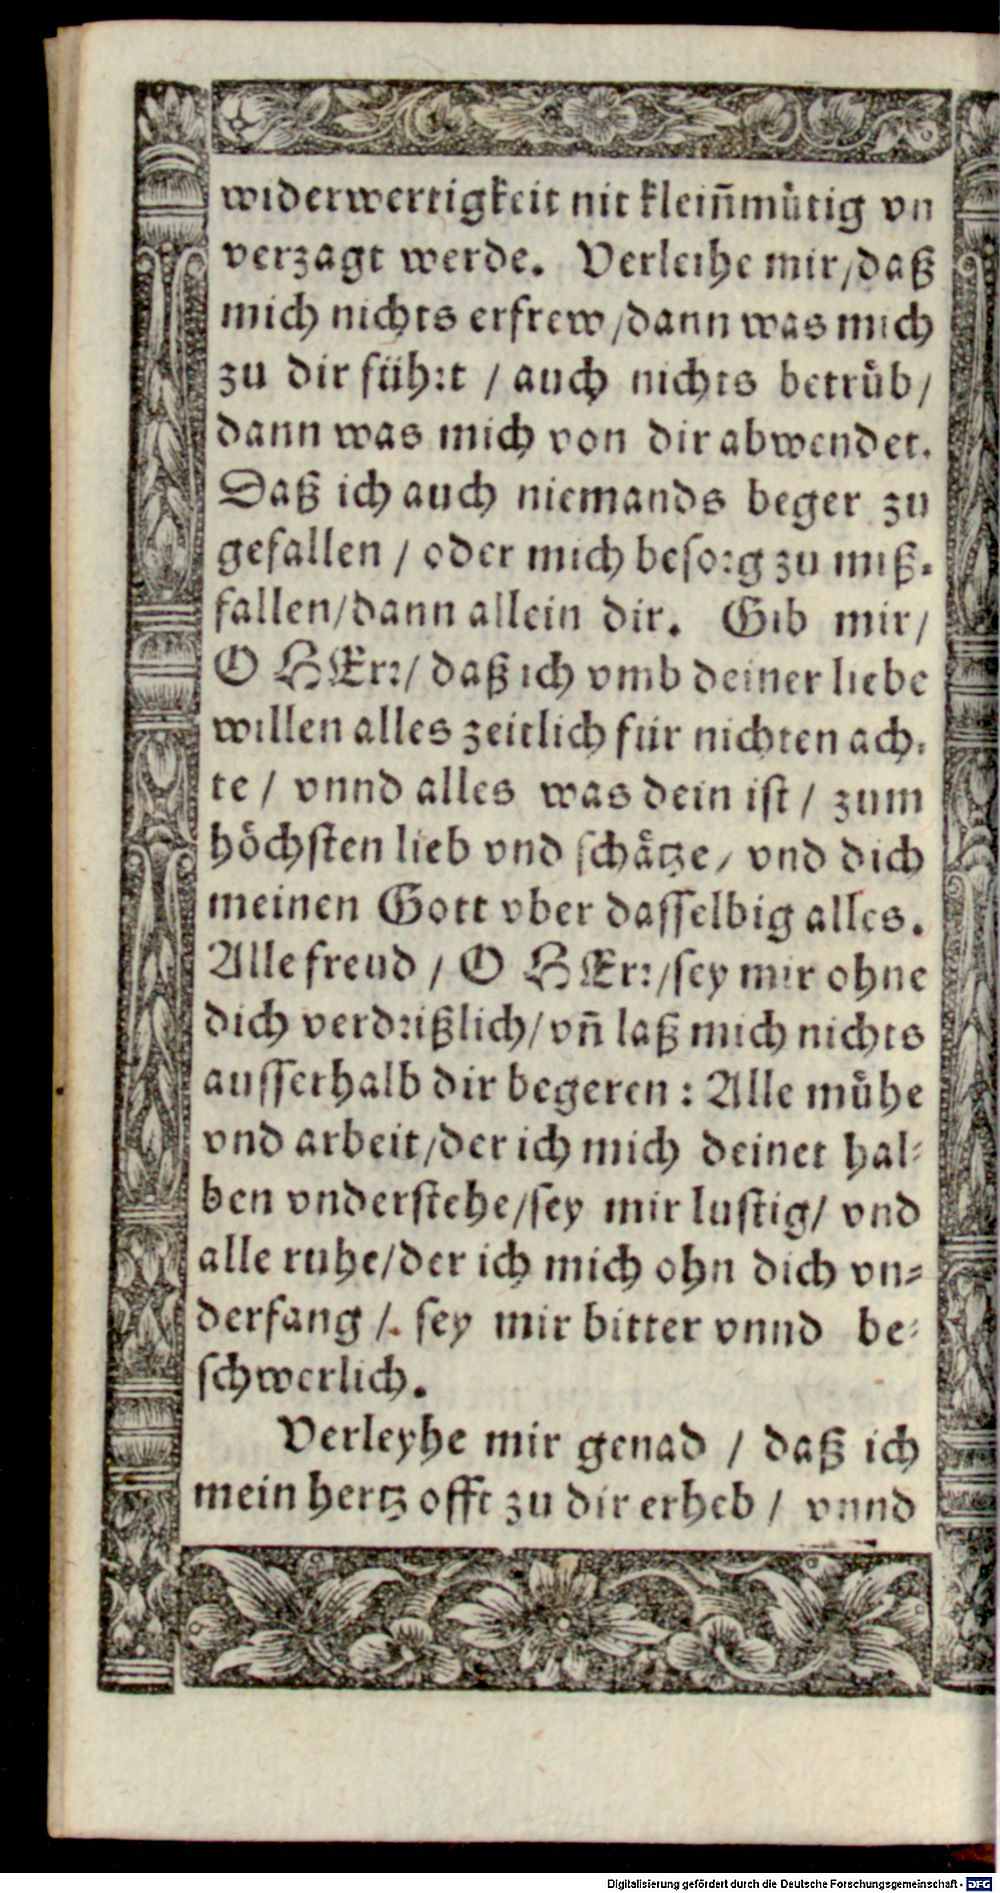 widerwertigkeit nit kleiñmuͤtig vn
verzagt werde. Verleihe mir/daß
mich nichts erfrew/dann was mich
zu dir fuͤhꝛt / auch nichts betruͤb/
dann was mich von dir abwendet.
Daß ich auch niemands beger zu
gefallen / oder mich besoꝛg zu miß-
fallen/dann allein dir. Gib mir/
O HErꝛ/ daß ich vmb deiner liebe
willen alles zeitlich fuͤr nichten ach-
te / vnnd alles was dein ist / zum
hoͤchsten lieb vnd schaͤtze/ vnd dich
meinen Gott vber dasselbig alles.
Alle freud / O HErꝛ/sey mir ohne
dich verdꝛißlich/vñ laß mich nichts
ausserhalb dir begeren: Alle muͤhe
vnd arbeit/der ich mich deinet hal-
ben vnderstehe/sey mir lustig/ vnd
alle ruhe/der ich mich ohn dich vn-
derfang /. sey mir bitter vnnd be-
schwerlich.
Verleyhe mir genad / daß ich
mein hertz offt zu dir erheb / vnnd
Digitalisierung gefördert durch die Deutsche Forschungsgemeinschaft - DFG